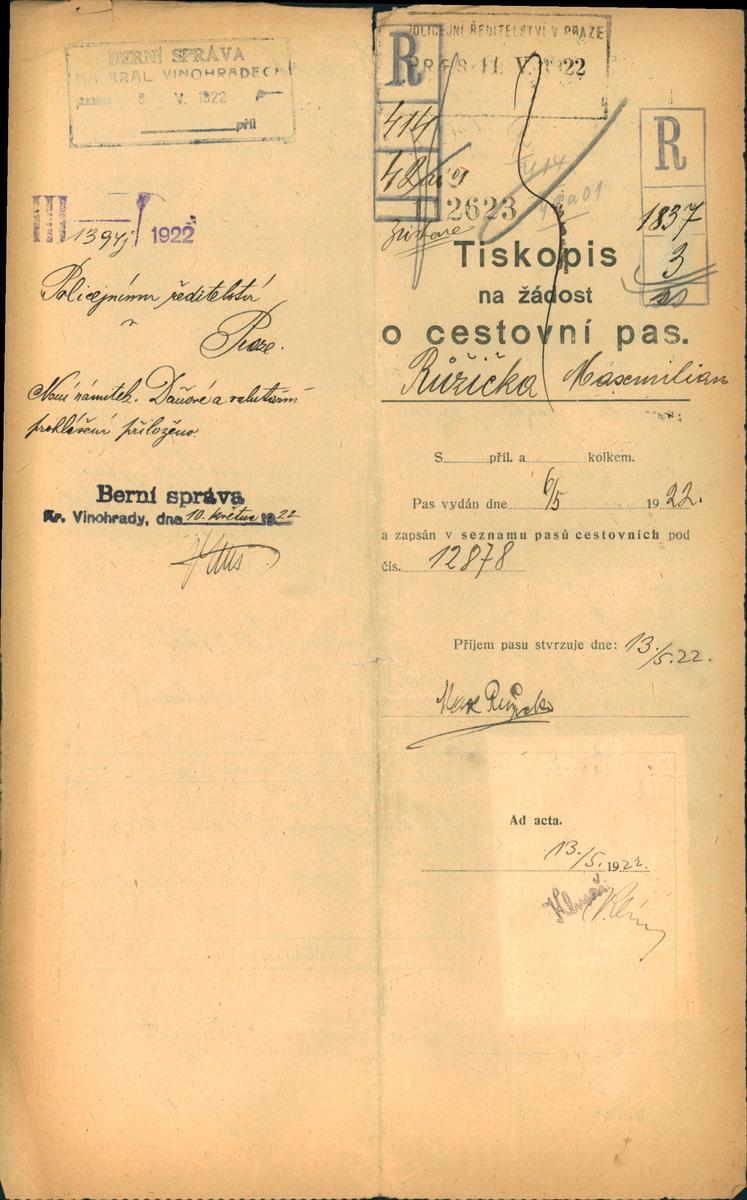 BERNÍ SPRÁVA
NA KRÁL. VINOHRADECH
8 V. 1922
příl
III 1394/ 1922
Policejnímu ředitelství
v
Praze.
Není námitek. Daňové a valutární
prohlášení přiloženo.
Berní správa
Kr. Vinohrady, dne 10. května 1922
POLICEJNÍ ŘEDITELSTVÍ V PRAZE
PRES 11. V. 1922
R
414
42
2623
R
1837
3
Tiskopis
na žádost
o cestovní pas.
Růžička Maxmilian
S příl. a kolkem.
Pas vydán dne 6/5 1922.
a zapsán v seznamu pasů cestovních pod
čís. 12878
Příjem pasu stvrzuje dne: 13./5.22.
Max Růžička
Ad acta.
13./5. 1922.